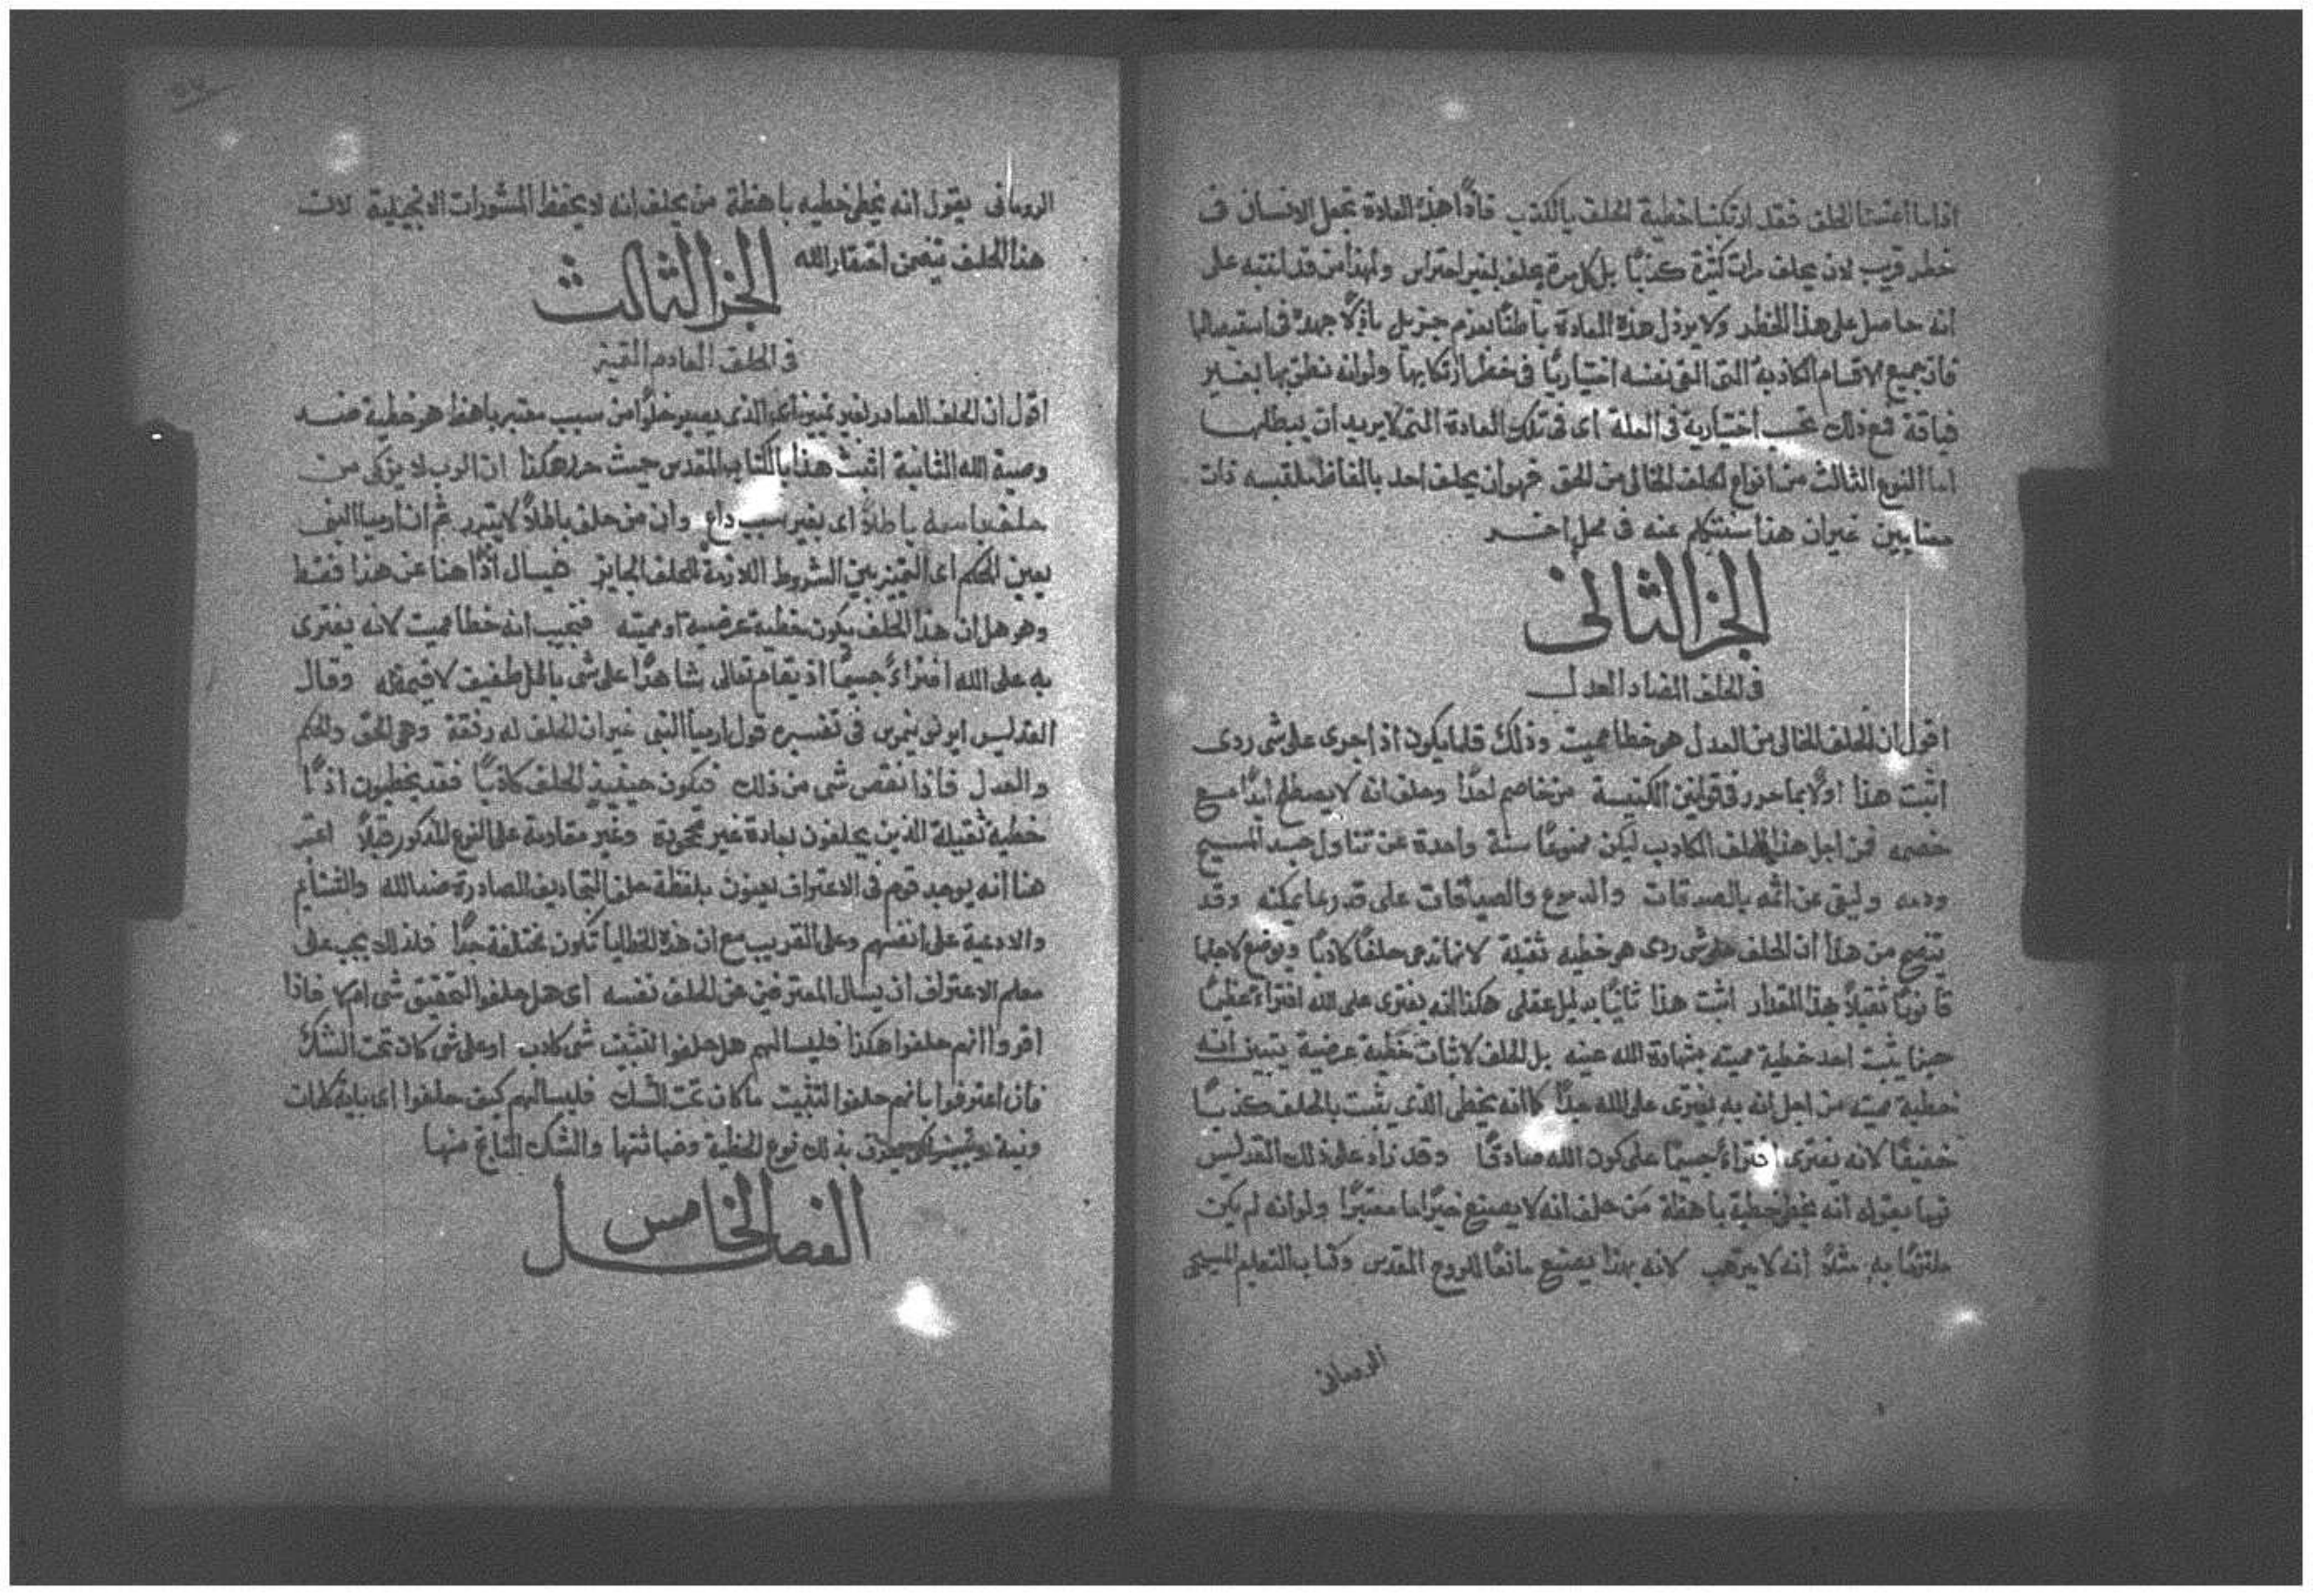 اذا ما اعتمدنا الحلف فقد ارتكبنا خطية الحلف بالكذب فاذًا هذه العادة تجعل الانسان في
خطر قريب لان يحلف مرات كثيرة كذبًا بل كل مرة يحلف بغير احتراس ولهذا من قد انتبه على
انه حاصل على هذا الخطر ولا يرذل هذه العادة باطنًا بعزم جزيل باذلًا جهده في استيصالها
فان جميع الاقسام الكاذبة التي القى نفسه اختياريًا في خطر ارتكابها ولو انه نطق بها بغير
فياقة فمع ذلك تحسب اختيارية في العلة اي في تلك العادة التي لا يريد ان يبطلها
اما النوع الثالث من انواع الحلف الخالي من الحق فهو ان يحلف احد بالفاظ ملتبسه ذات
معنايين غير ان هذا سنتكلم عنه في محل اخر
الجز الثاني
في الحلف المضاد العدل
اقول ان الحلف الخالي من العدل هو خطا مميت وذلك قلما يكون اذ اجرى على شي ردى
اثبت هذا اولًا بما حرر في قوانين الكنيسة من خاصم احدًا وحلف انه لا يصطلح ابدًا مع
خصمه فمن اجل هذا الحلف الكاذب ليكن ممنوعًا سنة واحدة عن تناول جسد المسيح
ودمه وليفي عن اثمه بالصدقات والدموع والصيامات على قدر ما يمكنه وقد
يتضح من هذا ان الحلف على شي ردى هو خطيه ثقيلة لانها تدعى حلفًا كاذبًا ويوضع لاجلها
قانونًا ثقيلًا بهذا المقدار اثبت هذا ثانيًا بدليل عقلي هكذا انه يفترى على الله افتراءً عظيمًا
حينما يثبت احد خطية مميته بشهادة الله عينه بل الحلف لاثبات خطية عرضية يتبين انه
خطية مميته من اجل انه به يفترى على الله جدًا كما انه يخطى الذي يثبت بالحلف كذبًا
خفيفًا لانه يفترى افتراءً جسيمًا على كون الله صادقًا وقد زاد على ذلك القديس
توما بقوله انه يخطى خطية باهظة من حلف انه لا يصنع خيرًا ما معتبرًا ولو انه لم يكن
ملتزمًا به مثلًا انه لا يترهب لانه بهذا يصنع مانعًا للروح المقدس وكتاب التعليم المسيحي
الروماني
الروماني يقول انه يخطى خطيه باهظة من يحلف انه لا يحفظ المشورات الانجيلية لان
هذا الحلف يتضمن احتقار الله
الجز الثالث
في الحلف العادم التميز
اقول ان الحلف الصادر بغير تمييز اي الذي يصير خلوًا من سبب معتبر باهظ هو خطية ضد
وصية الله الثانية اثبت هذا بالكتاب المقدس حيث حرر هكذا ان الرب لا يزكى من
حلف باسمه باطلًا اي بغير سبب داع وان من حلف باطلًا لا يتبرر ثم ان ارميا النبي
يعين الحكم اي التمييز بين الشروط اللازمة للحلف الجايز فيسال اذًا هنا عن هذا فقط
وهو هل ان هذا الحلف يكون خطية عرضيه او مميته فيجيب انه خطا مميت لانه يفترى
به على الله افتراءً جسيمًا اذ يقام تعالى شاهدًا على شي باطل طفيف لا قيمة له وقال
القديس ايرونيموس في تفسيره قول ارميا النبي غير ان الحلف له رفقة وهي الحق والحكم
والعدل فاذا نقص شي من ذلك فيكون حينيذ الحلف كاذبًا فقد يخطيون اذًا
خطيه ثقيلة الذين يحلفون بعادة غير محجوبة وغير مقاومة على النوع المذكور قبلًا اعتبر
هنا انه يوجد قوم في الاعتراف يعنون بلفظة حلف التجاديف الصادرة ضد الله والشتايم
والادعية على انفسهم وعلى القريب مع ان هذه الخطايا تكون مختلفة جدًا فلذلك يجب على
معلم الاعتراف ان يسال المعترفين عن الحلف نفسه اي هل حلفوا لتحقيق شي ام لا فاذا
اقروا انهم حلفوا هكذا فليسالهم هل حلفوا لتثبيت شي كاذب او على شي كان تحت الشك
فان اعترفوا بانهم حلفوا لتثبيت ما كان تحت الشك فليسالهم كيف حلفوا اي باية كلمات
ونية وتمييز لكي يعرف بذلك نوع الخطية وخباثتها والشك الناتج منها
الفصل الخامس